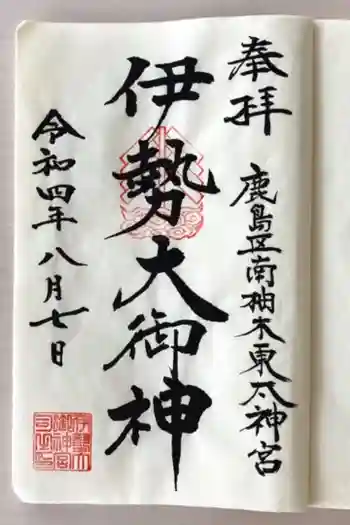 奉拝
鹿島区南柚木東太神宮
伊勢大御神
令和四年八月七日